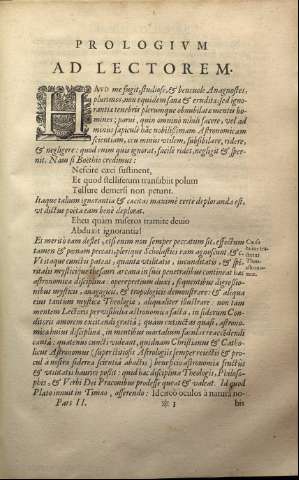 PROLOGIVM
AD LECTOREM.
HAVD me fugit, studiose, & beneuole Anagnostes,
plurimos, non equidem sana & erudita: sed igno-
rantiæ tenebris plerumque obnubilata mentis ho-
mines; parui, quin omnino nihili facere, vel ad
minus sapicula hâc nobilissimam Astronomicam
scientiam, ceu minus vtilem, subsibilare, ridere,
& negligere: quod enim quis ignorat, facile ridet, neglegit & sper-
nit. Nam si Boëthio credimus:
Nescire cæci sustinent,
Et quod stelliferum transabiit polum
Tellure demersi non petunt.
Itaque talium ignorantia & cæcitas maximè certè deploranda est,
vt dictum poëta eam benè deplorat.
Eheu quam miseros tramite deuio
Abducit ignorantia!
Et meritò eam deflet, etsi enim non semper peccatum sit, effectum
tamen & pœnam peccati plerique Scholastici eam agnoscunt &c.
Vt itaque cunctis pateat, quanta vtilitatis, iucunditatis, & spi-
ritalis mysticique thesauri arcana in suis penetralibus contineat hæc
astronomica disciplina: operæpretium duxi, sequentibus digressio-
nibus mysticè, anagogicè, & tropologicè demonstrare: & aliqua
eius tantum mystica Theologia, aliqualiter illustrare: non tam
mentem Lectoris peruigilia astronomica fassa, in siderum Con-
ditoris amorem excitandi gratiâ; quam extinctas quasi astrono-
mica huius disciplina, in mentibus mortalium faculas reaccendendi
causâ: quatenus cuncti videant, quidnam Christianus & Catho-
licus Astronomus (superstitiosis Astrologis semper reiectis & pro-
cul à nostra siderea scientia abactis) beneficio astronomiæ fructus
& vtilitatis haurire possit: quid hæc disciplina Theologis, Philoso-
phis, & Verbi Dei Præconibus prodesse queat & valeat. Id quod
Plato innuit in Timæo, asserendo: Ideircò oculos à natura no-
Pars II. ※ 3 bis